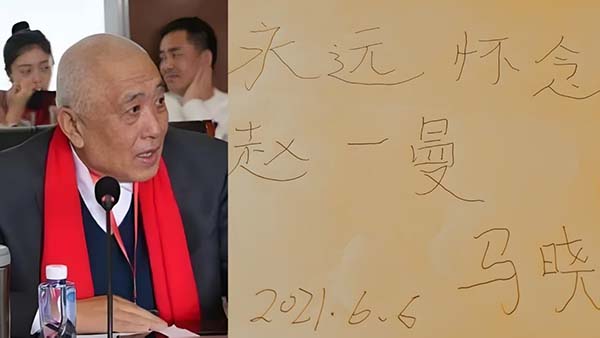 永远怀念
赵一曼
马晓
2021.6.6